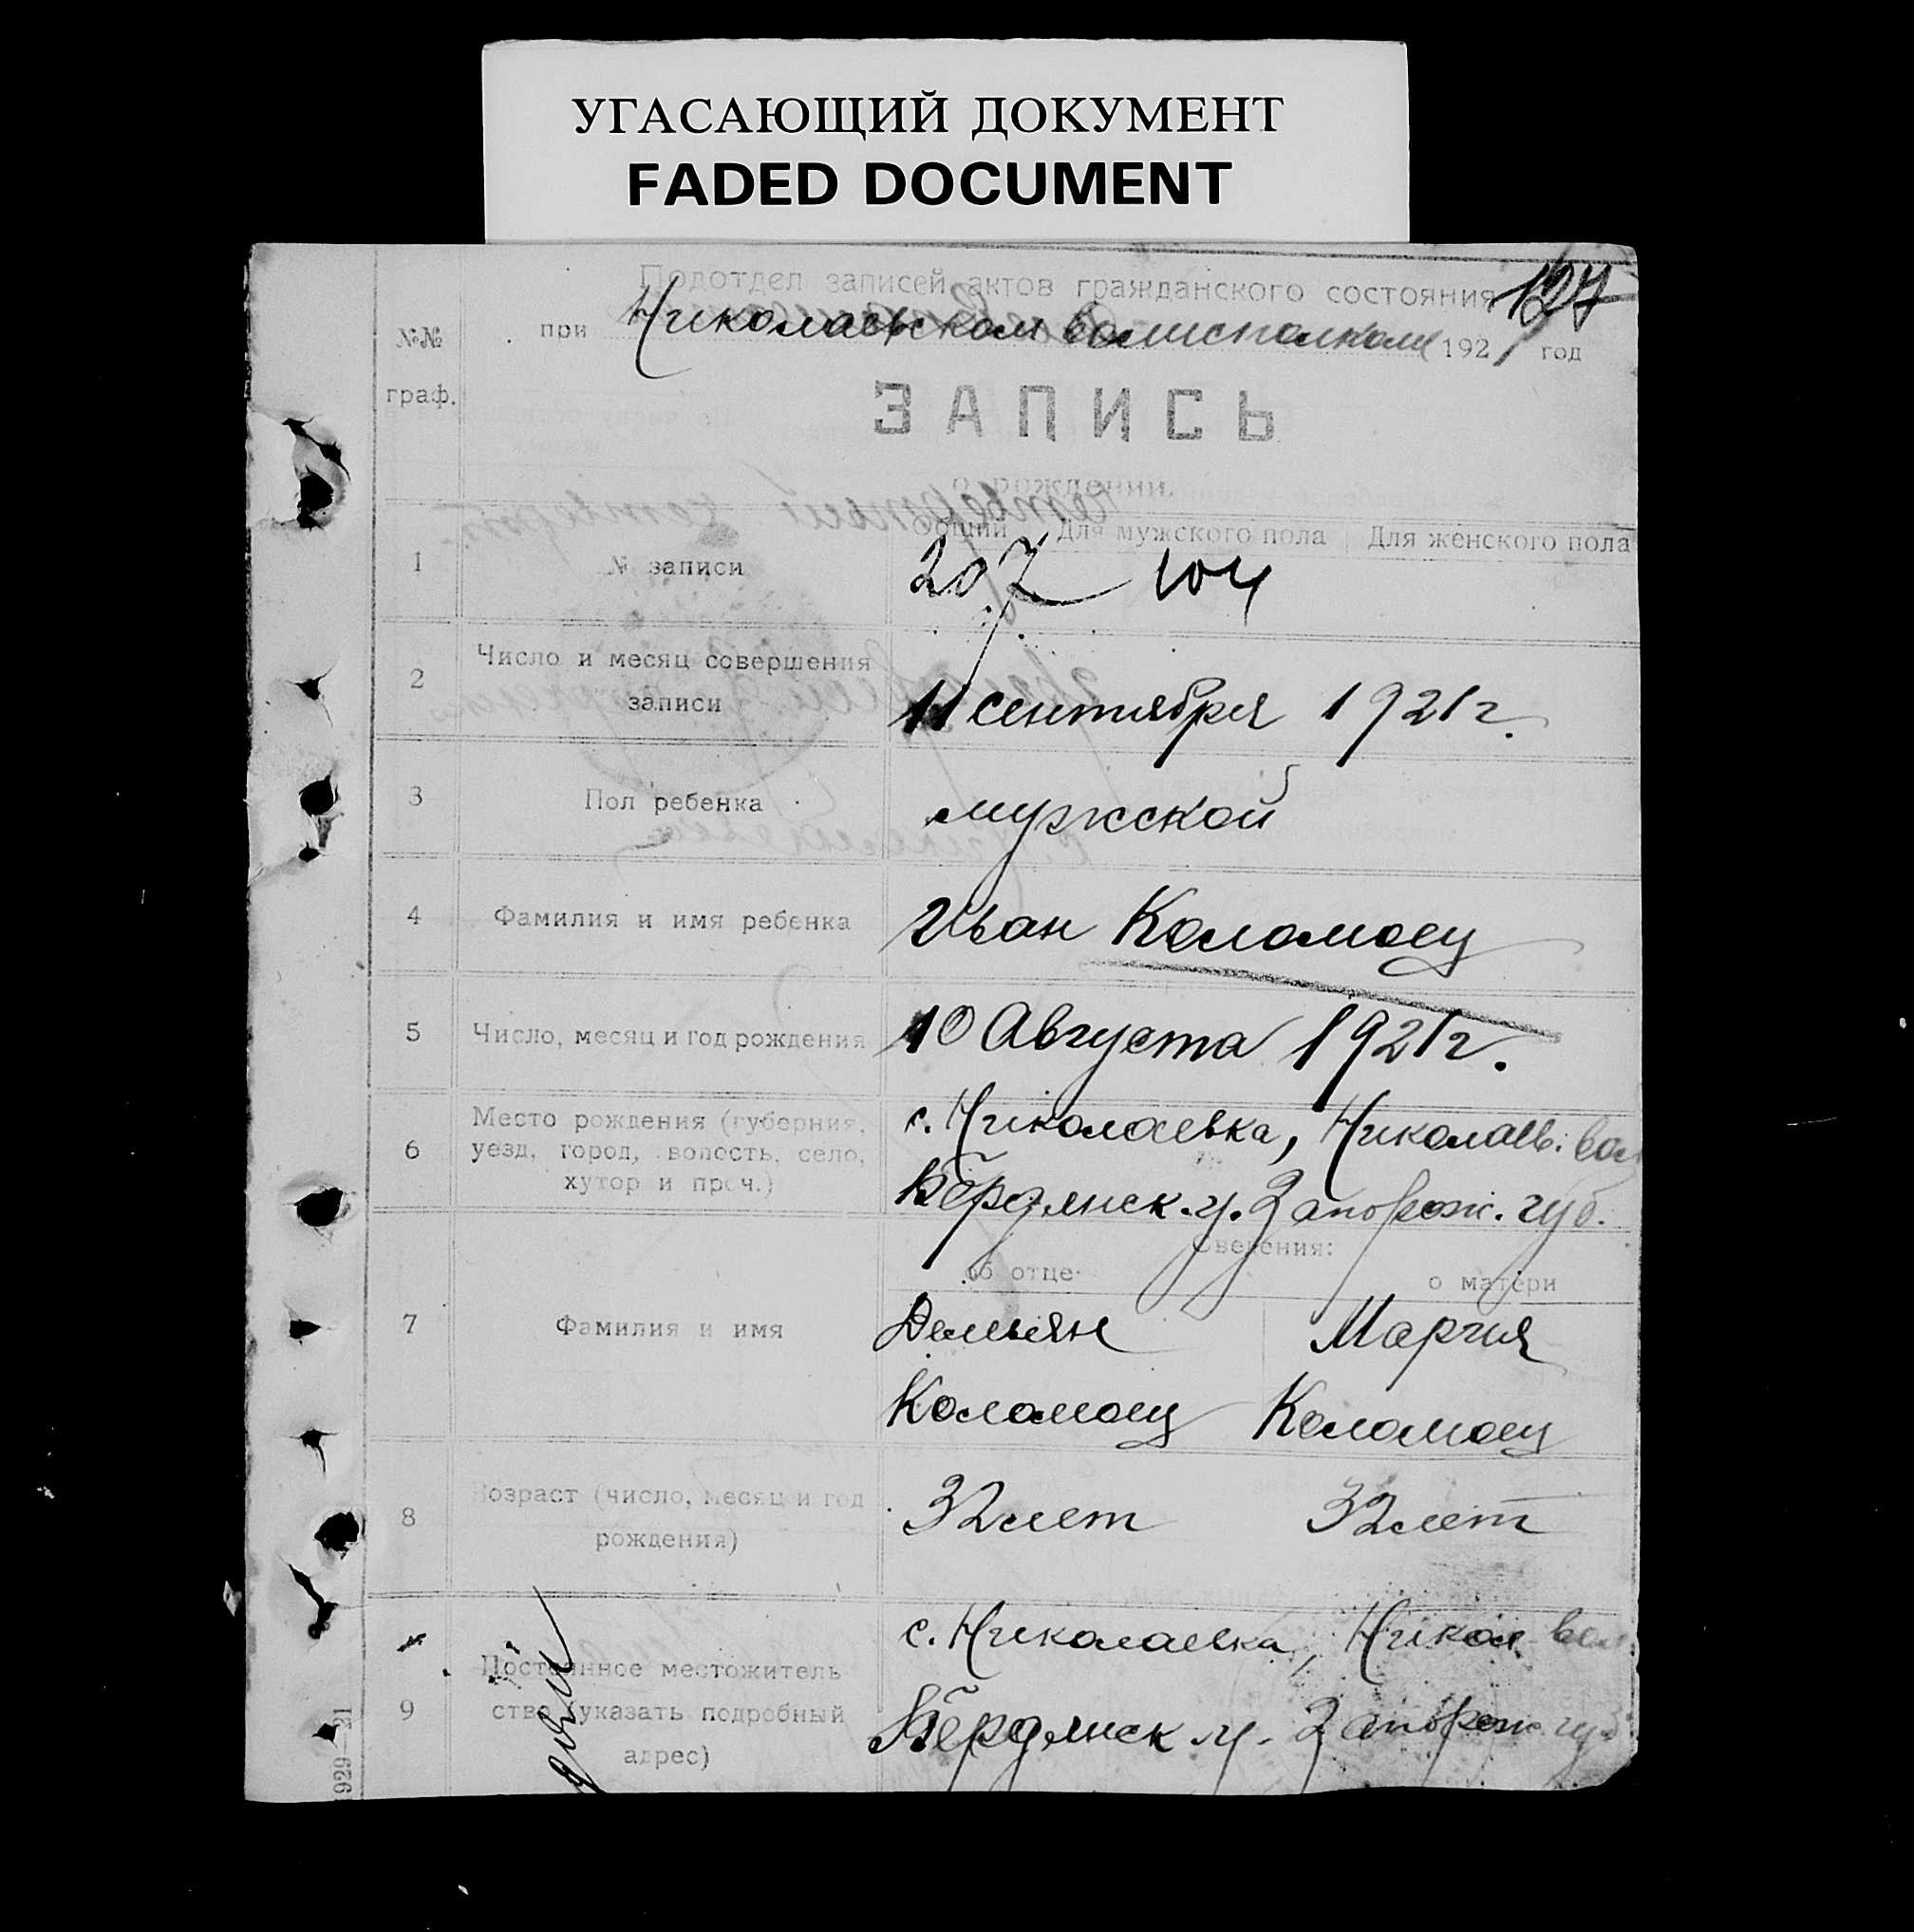 УГАСАЮЩИЙ ДОКУМЕНТ
FADED DOCUMENT
Подотдел записей актов гражданского состояния 127
при Николаевском волисполкоме 1921 год
№№
граф.
ЗАПИСЬ
о рождении.
Общий Для мужского пола Для женского пола
1 № записи 207 104
2 Число и месяц совершения
записи 11 сентября 1921 г.
3 Пол ребенка мужской
4 Фамилия и имя ребенка Иван Коломоец
5 Число, месяц и год рождения 10 Августа 1921 г.
6 Место рождения (губерния, с. Николаевка, Николаев. вол
уезд, город, волость, село,
хутор и проч.) Бердянск. у. Запорож. губ.
Сведения:
об отце о матери
7 Фамилия и имя Демьян Мария
Коломоец Коломоец
8 Возраст (число, месяц и год 32 лет 32 лет
рождения)
с. Николаевка, Никол вол
Постоянное местожитель
9 ство (указать подробный Бердянск у. Запорож. губ
адрес)
929 21